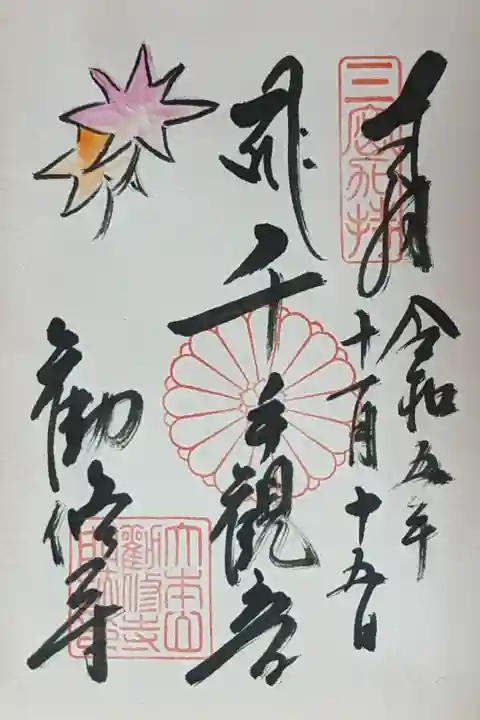 奉拝
令和五年
十一月十五日
千手観音
勧修寺
三密加持
大本山
勧修寺